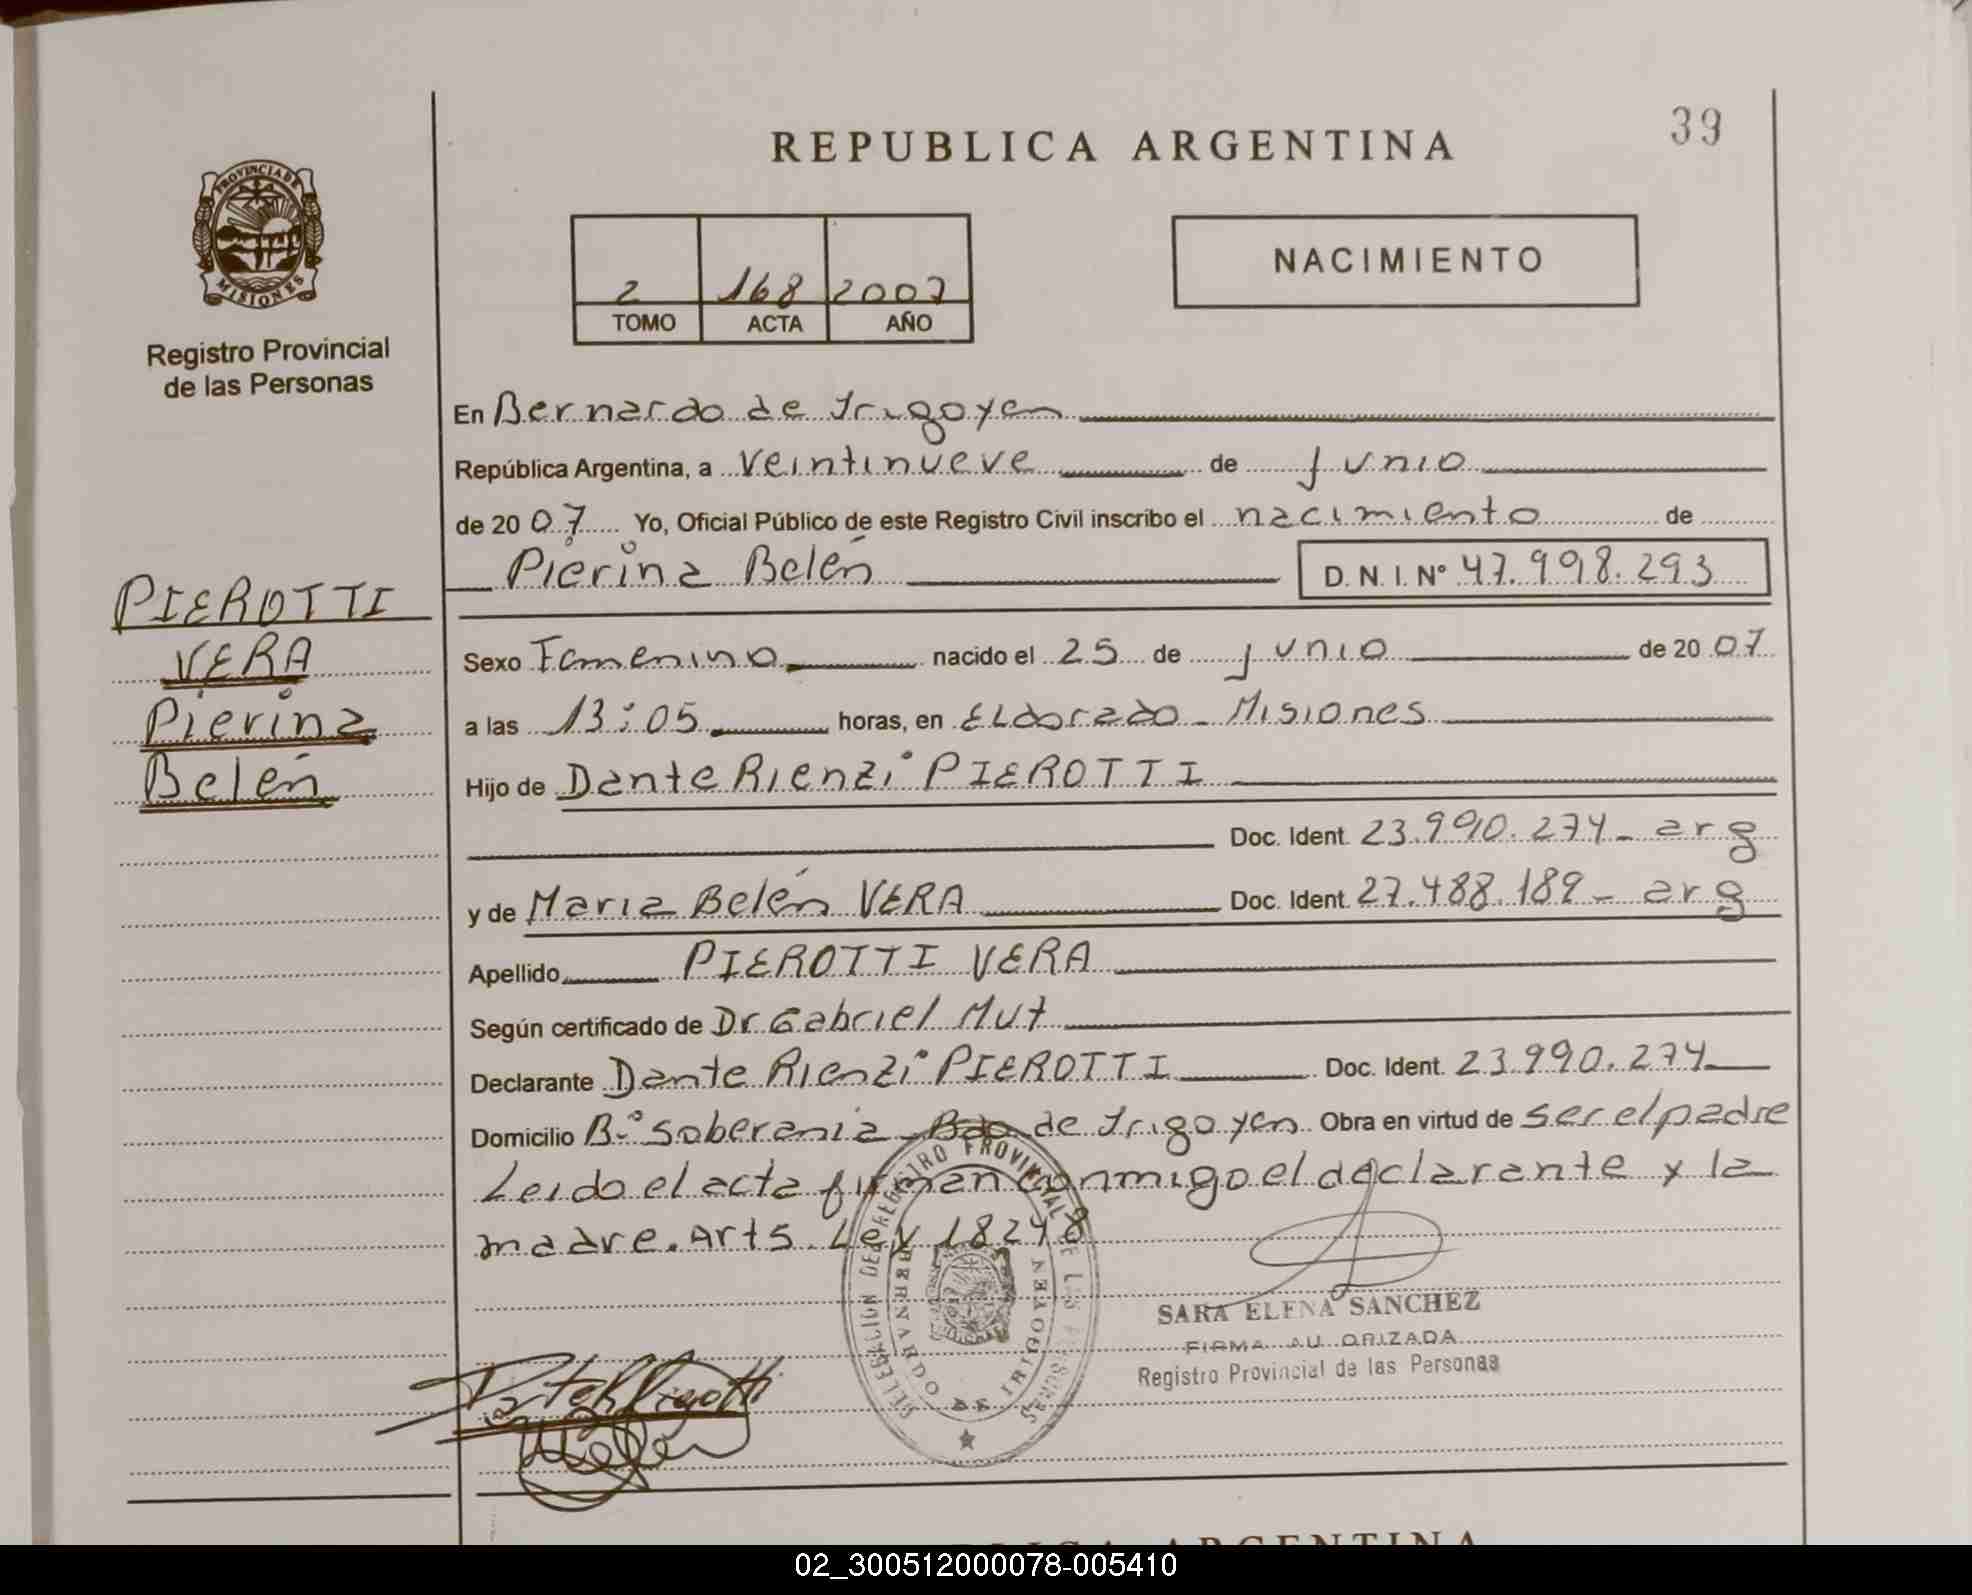 39
REPUBLICA ARGENTINA
PROVINCIA DE
MISIONES
Registro Provincial
de las Personas
2 168 2007
TOMO ACTA AÑO
NACIMIENTO
En Bernardo de Irigoyen
República Argentina, a veintinueve de junio
de 2007 Yo, Oficial Público de este Registro Civil inscribo el nacimiento de
Pierina Belén D.N.I. Nº 47.998.293
PIEROTTI
VERA
Pierina
Belén
Sexo Femenino nacido el 25 de junio de 2007
a las 13:05 horas, en ELdorado - Misiones
Hijo de Dante Rienzi PIEROTTI
Doc. Ident. 23.990.274 - arg
y de Maria Belén VERA Doc. Ident. 27.488.189 - arg
Apellido PIEROTTI VERA
Según certificado de Dr Gabriel Mut
Declarante Dante Rienzi PIEROTTI Doc. Ident. 23.990.274
Domicilio Bº Soberania - Bdo de Irigoyen Obra en virtud de ser el padre
Leido el acta firman conmigo el declarante y la
madre. Arts. Ley 18248
REGISTRO PROVINCIAL DE LAS PERSONAS
BERNARDO DE IRIGOYEN
SARA ELENA SANCHEZ
FIRMA AU ORIZADA
Registro Provincial de las Personas
ARGENTINA
02_300512000078-005410